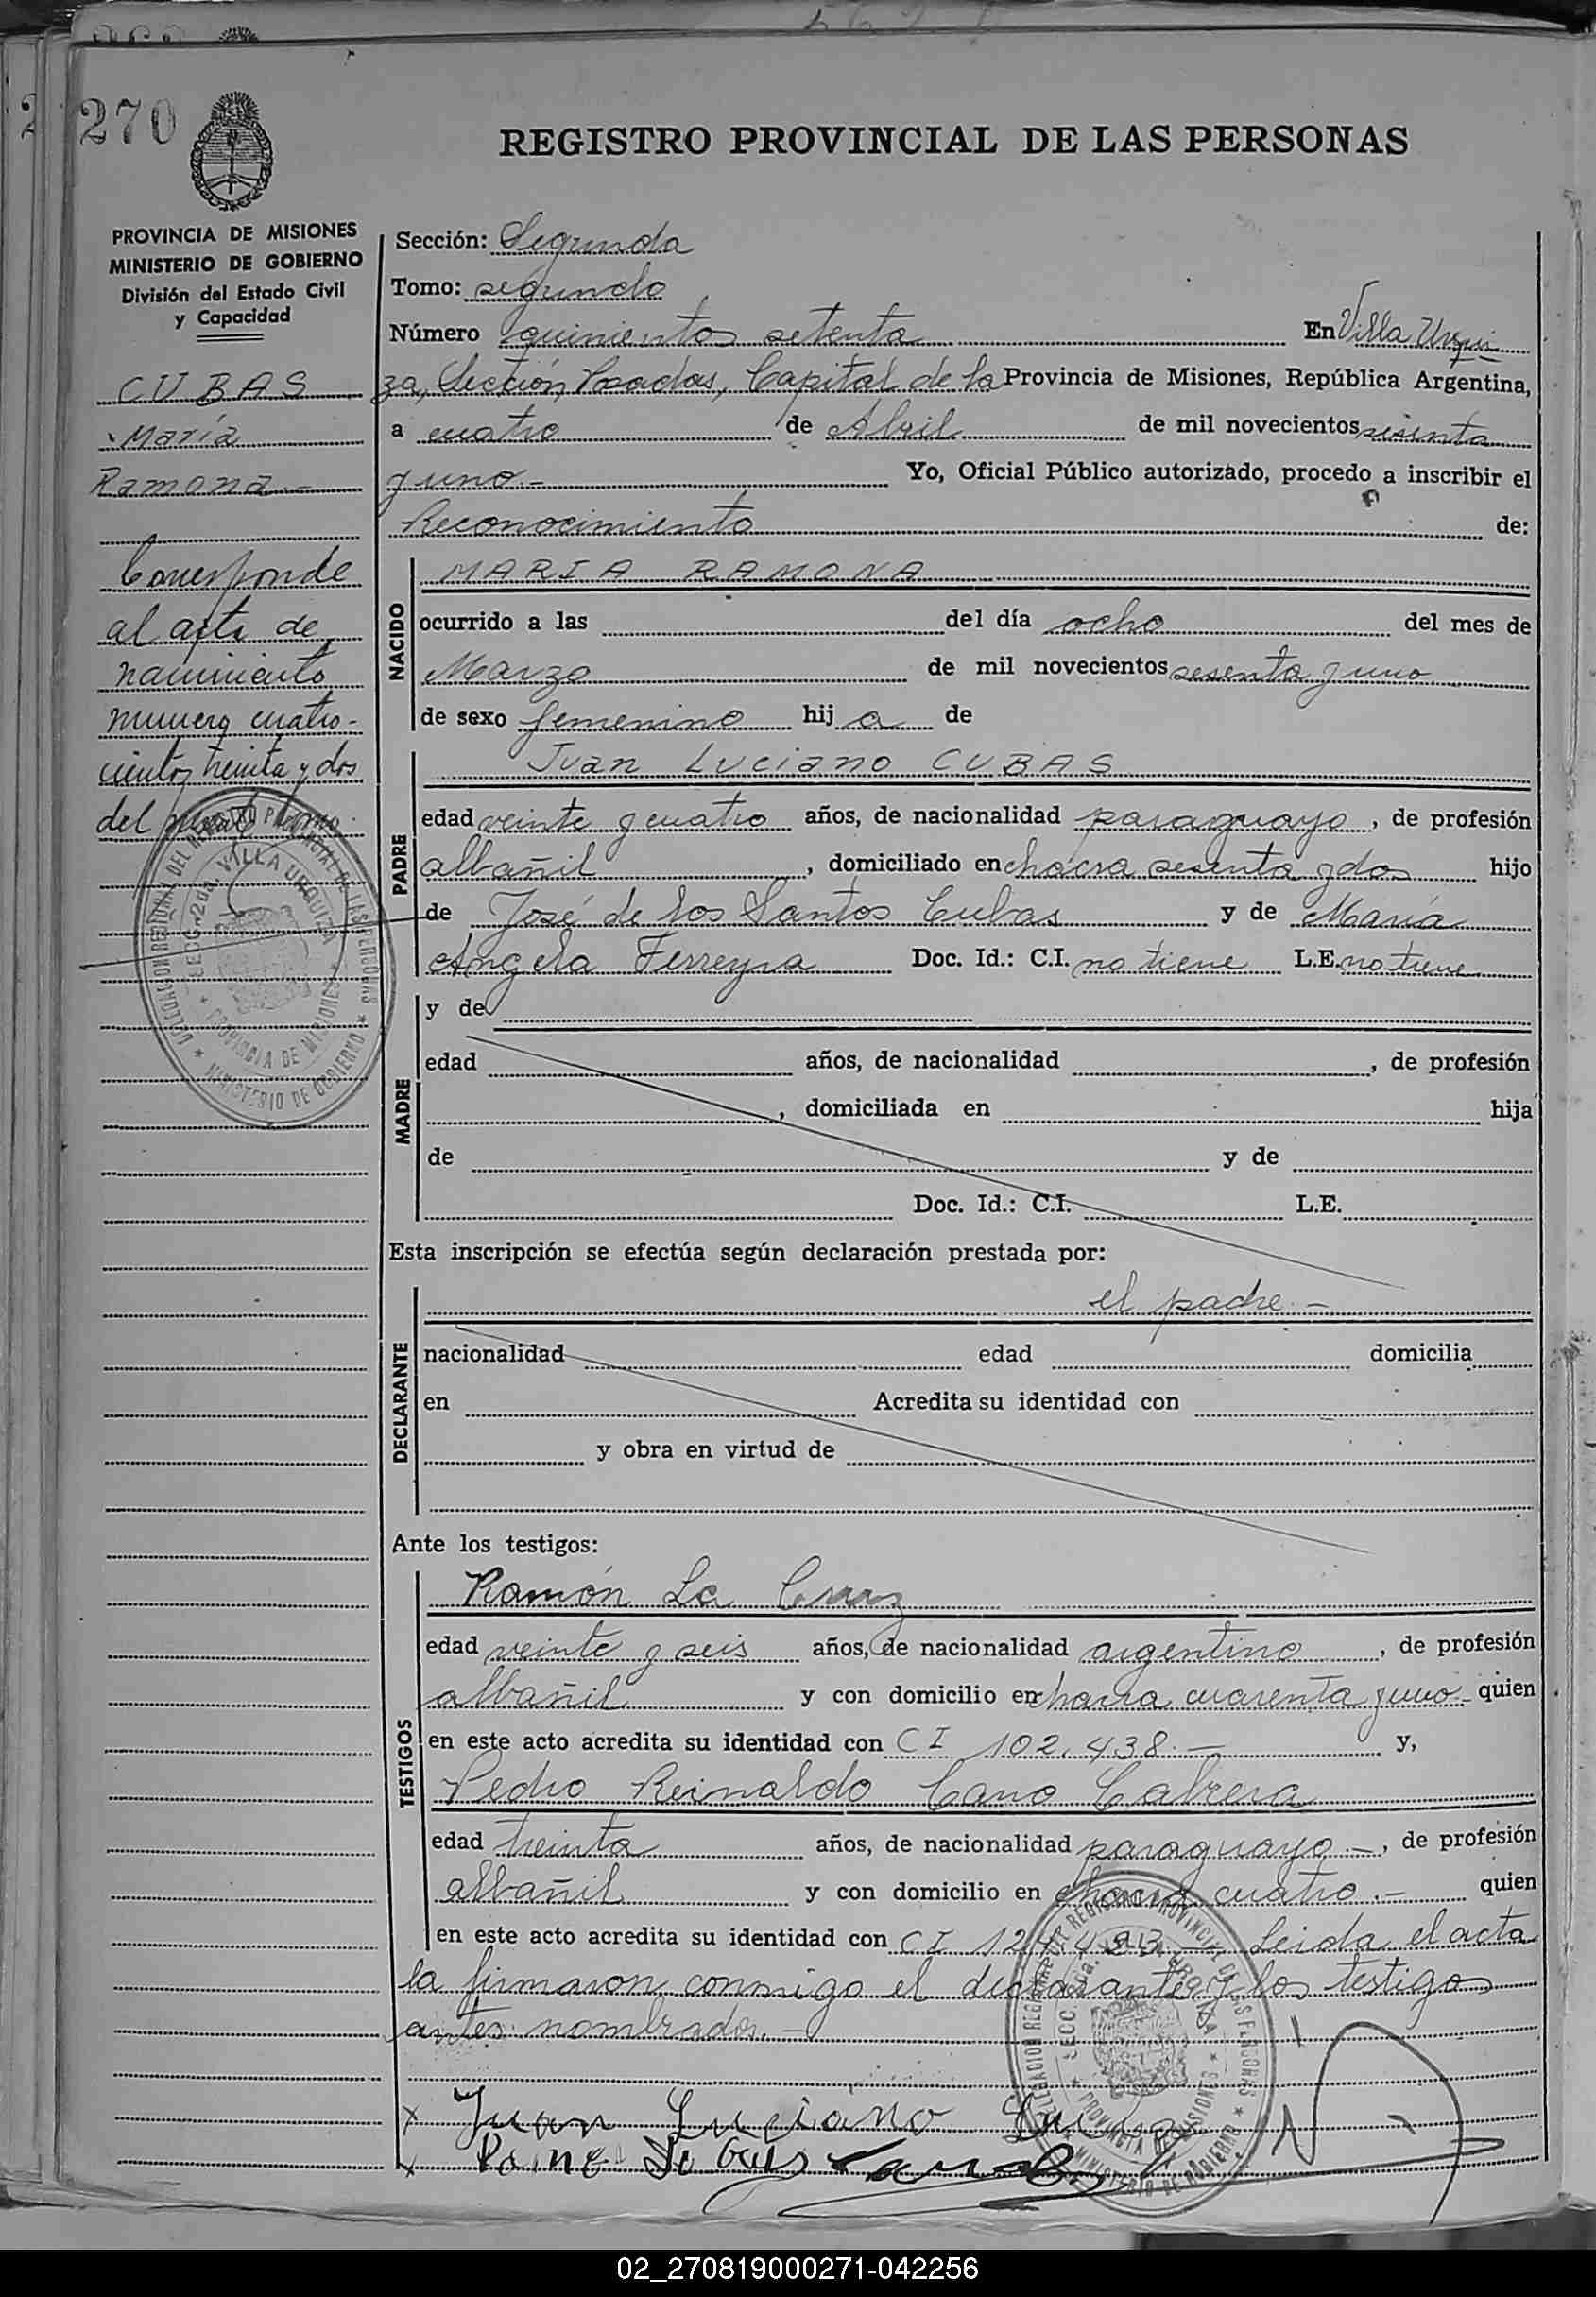 270
REGISTRO PROVINCIAL DE LAS PERSONAS
PROVINCIA DE MISIONES
MINISTERIO DE GOBIERNO
División del Estado Civil
y Capacidad
CUBAS
María
Ramona.-
Corresponde
al acta de
nacimiento
numero cuatro-
cientos treinta y dos
del
Sección: Segunda
Tomo: segundo
Número quinientos setenta En Villa Urqui
za, Sección, Posadas, Capital de la Provincia de Misiones, República Argentina,
a cuatro de Abril de mil novecientos sesenta
y uno.- Yo, Oficial Público autorizado, procedo a inscribir el
Reconocimiento de:
NACIDO
MARIA RAMONA
ocurrido a las del día ocho del mes de
Marzo de mil novecientos sesenta y uno
de sexo femenino hij a de
PADRE
Juan Luciano CUBAS
edad veinte y cuatro años, de nacionalidad paraguayo, de profesión
albañil, domiciliado en chacra sesenta y dos hijo
de José de los Santos Cubas y de María
Angela Ferreyra Doc. Id.: C.I. no tiene L.E. no tiene
MADRE
y de
edad años, de nacionalidad , de profesión
, domiciliada en hija
de y de
Doc. Id.: C.I. L.E.
Esta inscripción se efectúa según declaración prestada por:
DECLARANTE
el padre.-
nacionalidad edad domicilia
en Acredita su identidad con
y obra en virtud de
Ante los testigos:
TESTIGOS
Ramón La Cruz
edad veinte y seis años, de nacionalidad argentino, de profesión
albañil y con domicilio en chacra cuarenta y uno- quien
en este acto acredita su identidad con CI 102.438.- y,
Pedro Reinaldo Cano Cabrera
edad treinta años, de nacionalidad paraguayo.-, de profesión
albañil y con domicilio en chacra cuatro.- quien
en este acto acredita su identidad con CI Leida el acta
la firmaron conmigo el declarante y los testigos
antes nombrados.-
Juan Luciano
DELEGACION REGIONAL DEL REGISTRO PROVINCIAL DE LAS PERSONAS
SECC. 2da. VILLA URQUIZA
PROVINCIA DE MISIONES
MINISTERIO DE GOBIERNO
02_270819000271-042256